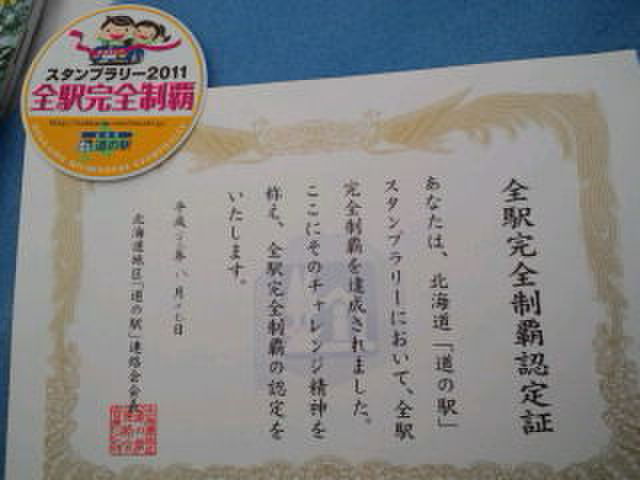 スタンプラリー2011
全駅完全制覇
道の駅
全駅完全制覇認定証
あなたは、北海道「道の駅」
スタンプラリーにおいて、全駅
完全制覇を達成されました。
ここにそのチャレンジ精神を
称え、全駅完全制覇の認定を
いたします。
北海道地区「道の駅」連絡会会長